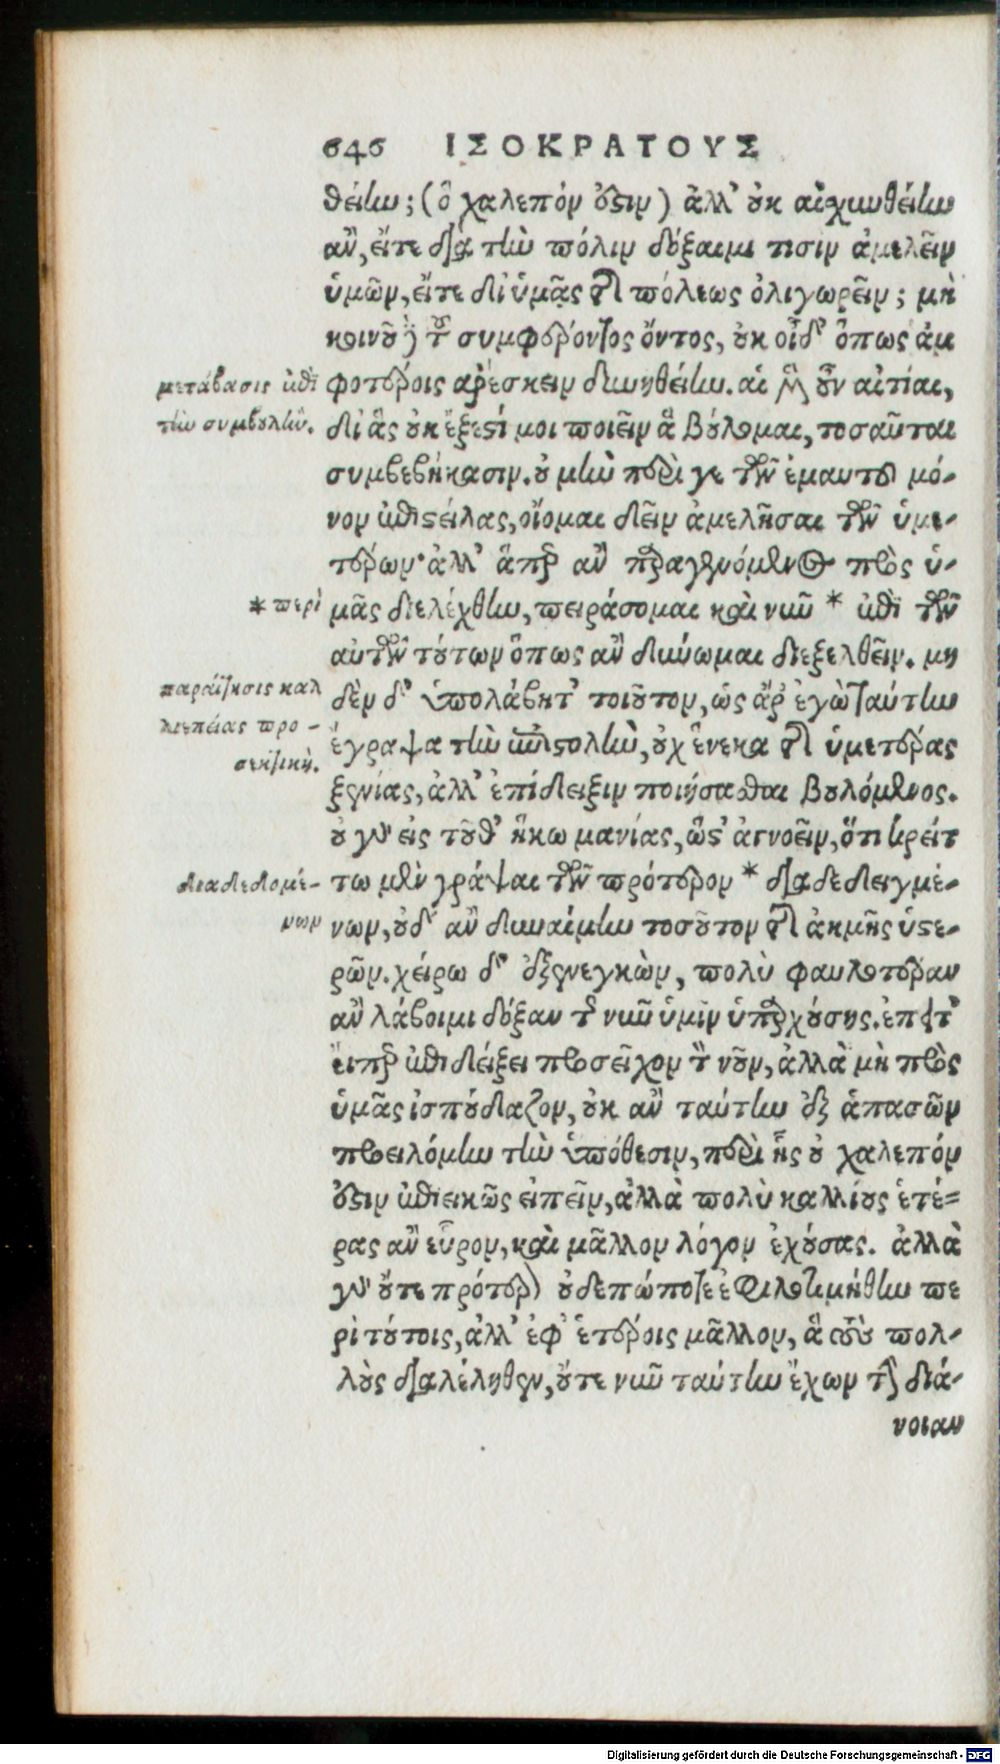 646 ΙΣΟΚΡΑΤΟΥΣ
θείην; (ὃ χαλεπόν ὄξιν) ἀλλ' οὐκ αἰσχυνθείην
ἂν, εἴτε διὰ τὴν πόλιν δόξαιμι τισιν ἀμελεῖν
ὑμῶν, εἴτε δι' ὑμᾶς τῆς πόλεως ὀλιγωρεῖν; μὴ
κοινοῦ δὲ τοῦ συμφέροντος ὄντος, οὐκ οἶδ' ὅπως ἀμ
μετάβασις ἐπὶ
φοτέροις ἀρέσκειν δυνηθείην. αἱ μὲν οὖν αἰτίαι,
τὴν συμβουλήν.
δι' ἃς οὐκ ἔξεστί μοι ποιεῖν ἃ βούλομαι, τοσαῦται
συμβεβήκασιν. οὐ μὴν περὶ γε τῶν ἐμαυτοῦ μό-
νον ἐπιστείλας, οἴομαι δεῖν ἀμελῆσαι τῶν ὑμε-
τέρων· ἀλλ' ἅπερ ἂν παραγενόμενος πρὸς ὑ-
* περὶ
μᾶς διελέχθην, πειράσομαι καὶ νῦν * ἐπὶ τῶν
αὐτῶν τούτων ὅπως ἂν δύνωμαι διεξελθεῖν. μη
παραίτησις καλ
δὲν δ' ὑπολάβητ' τοιοῦτον, ὡς ἄρ' ἐγὼ ταύτην
λιεπείας προ-
ἔγραψα τὴν ἐπιστολὴν, οὐχ ἕνεκα τῆς ὑμετέρας
ξενίας, ἀλλ' ἐπίδειξιν ποιήσασθαι βουλόμενος.
οὐ γὰρ εἰς τοῦθ' ἥκω μανίας, ὥστ' ἀγνοεῖν, ὅτι κρείτ
διαδεδομέ-
τω μὲν γράψαι τῶν πρότερον * διαδεδειγμέ-
νων
νων, οὐδ' ἂν δυναίμην τοσοῦτον τῆς ἀκμῆς ὑστε-
ρῶν. χείρω δ' ἐξενεγκὼν, πολὺ φαυλοτέραν
ἂν λάβοιμι δόξαν τῆς νῦν ὑμῖν ὑπαρχούσης. ἔπειτ'
εἴπερ ἐπιδείξει προσεῖχον τὸν νοῦν, ἀλλὰ μὴ πρὸς
ὑμᾶς ἐσπούδαζον, οὐκ ἂν ταύτην ἐξ ἁπασῶν
προειλόμην τὴν ὑπόθεσιν, περὶ ἧς οὐ χαλεπόν
ὄξιν ἐπιεικῶς εἰπεῖν, ἀλλὰ πολὺ καλλίους ἑτέ-
ρας ἂν εὗρον, καὶ μᾶλλον λόγον ἐχούσας. ἀλλὰ
γὰρ οὔτε πρότερον οὐδεπώποτε ἐφιλοτιμήθην πε
ρὶ τούτοις, ἀλλ' ἐφ' ἑτέροις μᾶλλον, ἃ τοὺς πολ-
λοὺς διαλέληθεν, οὔτε νῦν ταύτην ἔχων τὴν διά-
νοιαν
Digitalisierung gefördert durch die Deutsche Forschungsgemeinschaft - DFG